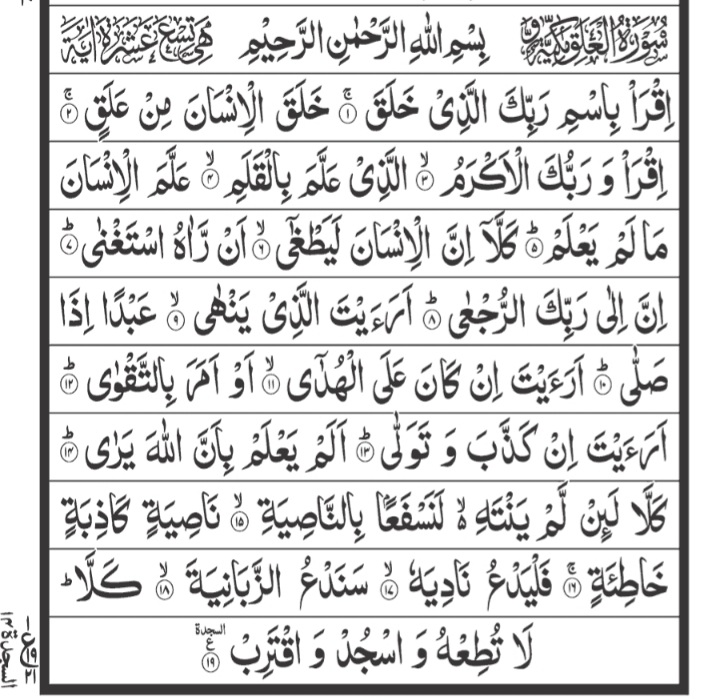 سُوْرَةُ الْعَلَقِ مَكِّيَّةٌ وَّ بِسْمِ اللّٰهِ الرَّحْمٰنِ الرَّحِيْمِ هِيَ تِسْعَ عَشْرَةَ اٰيَةً
اِقْرَاْ بِاسْمِ رَبِّكَ الَّذِىْ خَلَقَ ۚ‏﴿۱﴾ خَلَقَ الْاِنْسَانَ مِنْ عَلَقٍ‌ ۚ‏﴿۲﴾
اِقْرَاْ وَ رَبُّكَ الْاَكْرَمُ ۙ‏﴿۳﴾ الَّذِىْ عَلَّمَ بِالْقَلَمِ ۙ‏﴿۴﴾ عَلَّمَ الْاِنْسَانَ
مَا لَمْ يَعْلَمْ ؕ‏﴿۵﴾ كَلَّاۤ اِنَّ الْاِنْسَانَ لَيَطْغٰٓى ۙ‏﴿۶﴾ اَنْ رَّاٰهُ اسْتَغْنٰى ؕ‏﴿۷﴾
اِنَّ اِلٰى رَبِّكَ الرُّجْعٰى ؕ‏﴿۸﴾ اَرَءَيْتَ الَّذِىْ يَنْهٰى ۙ‏﴿۹﴾ عَبْدًا اِذَا
صَلّٰى ؕ‏﴿۱۰﴾ اَرَءَيْتَ اِنْ كَانَ عَلَى الْهُدٰٓى ۙ‏﴿۱۱﴾ اَوْ اَمَرَ بِالتَّقْوٰى ؕ‏﴿۱۲﴾
اَرَءَيْتَ اِنْ كَذَّبَ وَ تَوَلّٰى ؕ‏﴿۱۳﴾ اَلَمْ يَعْلَمْ بِاَنَّ اللّٰهَ يَرٰى ؕ‏﴿۱۴﴾
كَلَّا لَئِنْ لَّمْ يَنْتَهِ ۙ لَنَسْفَعًۢا بِالنَّاصِيَةِ ۙ‏﴿۱۵﴾ نَاصِيَةٍ كَاذِبَةٍ
خَاطِئَةٍ‌ ۚ‏﴿۱۶﴾ فَلْيَدْعُ نَادِيَهٗ ۙ‏﴿۱۷﴾ سَنَدْعُ الزَّبَانِيَةَ ۙ‏﴿۱۸﴾ كَلَّا ؕ
لَا تُطِعْهُ وَ اسْجُدْ وَ اقْتَرِبْ ﴿۱۹﴾ السجدة ع
السجدة ۱۴